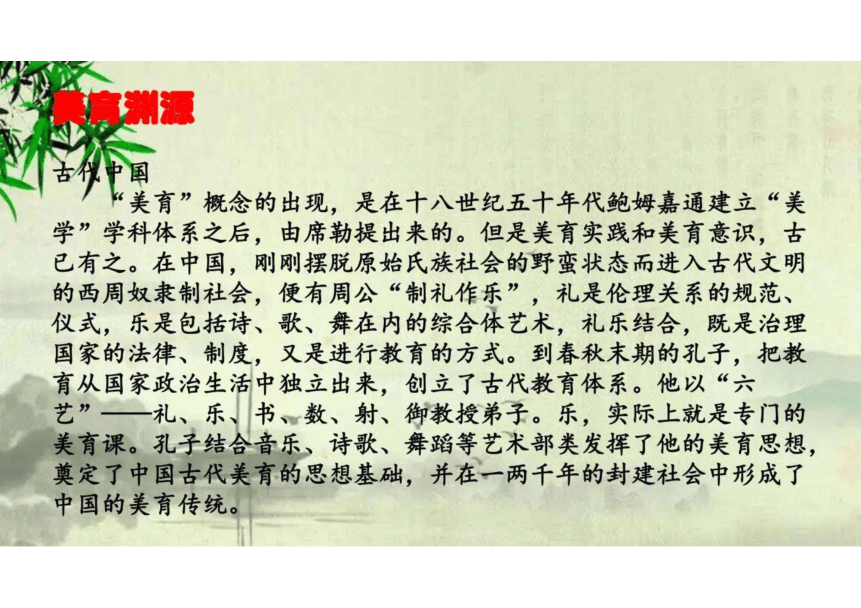 美育渊源
古代中国
“美育”概念的出现，是在十八世纪五十年代鲍姆嘉通建立“美
学”学科体系之后，由席勒提出来的。但是美育实践和美育意识，古
已有之。在中国，刚刚摆脱原始氏族社会的野蛮状态而进入古代文明
的西周奴隶制社会，便有周公“制礼作乐”，礼是伦理关系的规范、
仪式，乐是包括诗、歌、舞在内的综合体艺术，礼乐结合，既是治理
国家的法律、制度，又是进行教育的方式。到春秋末期的孔子，把教
育从国家政治生活中独立出来，创立了古代教育体系。他以“六
艺”——礼、乐、书、数、射、御教授弟子。乐，实际上就是专门的
美育课。孔子结合音乐、诗歌、舞蹈等艺术部类发挥了他的美育思想，
奠定了中国古代美育的思想基础，并在一两千年的封建社会中形成了
中国的美育传统。